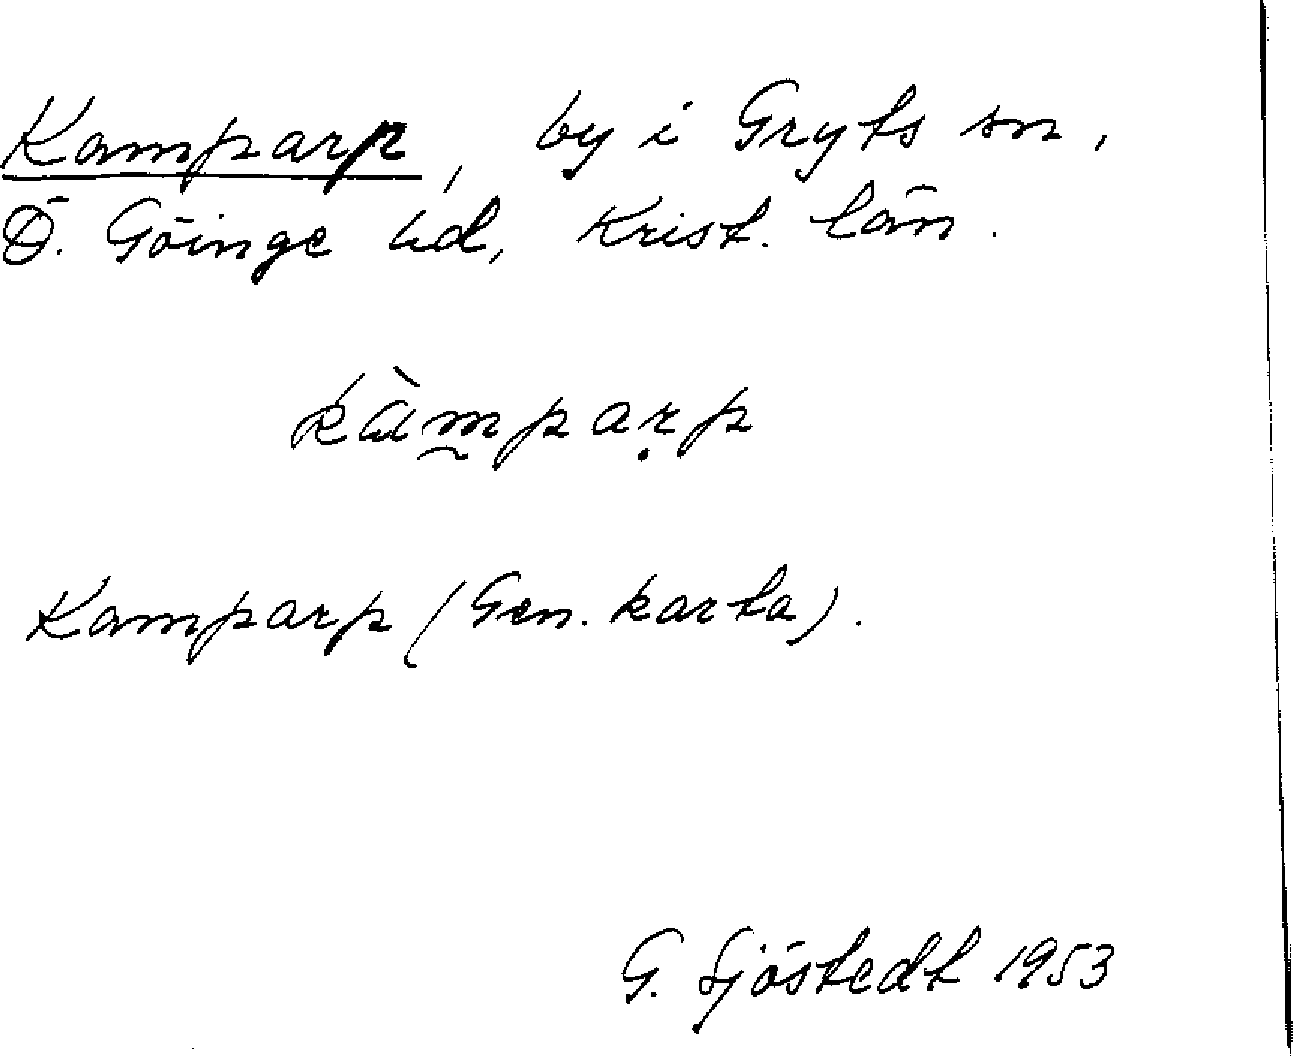 Kamparp, by i Gryts sn,
Ö. Göinge hd, Krist. län.
kàmparp
Kamparp (Gen. karta).
G. Sjöstedt 1953